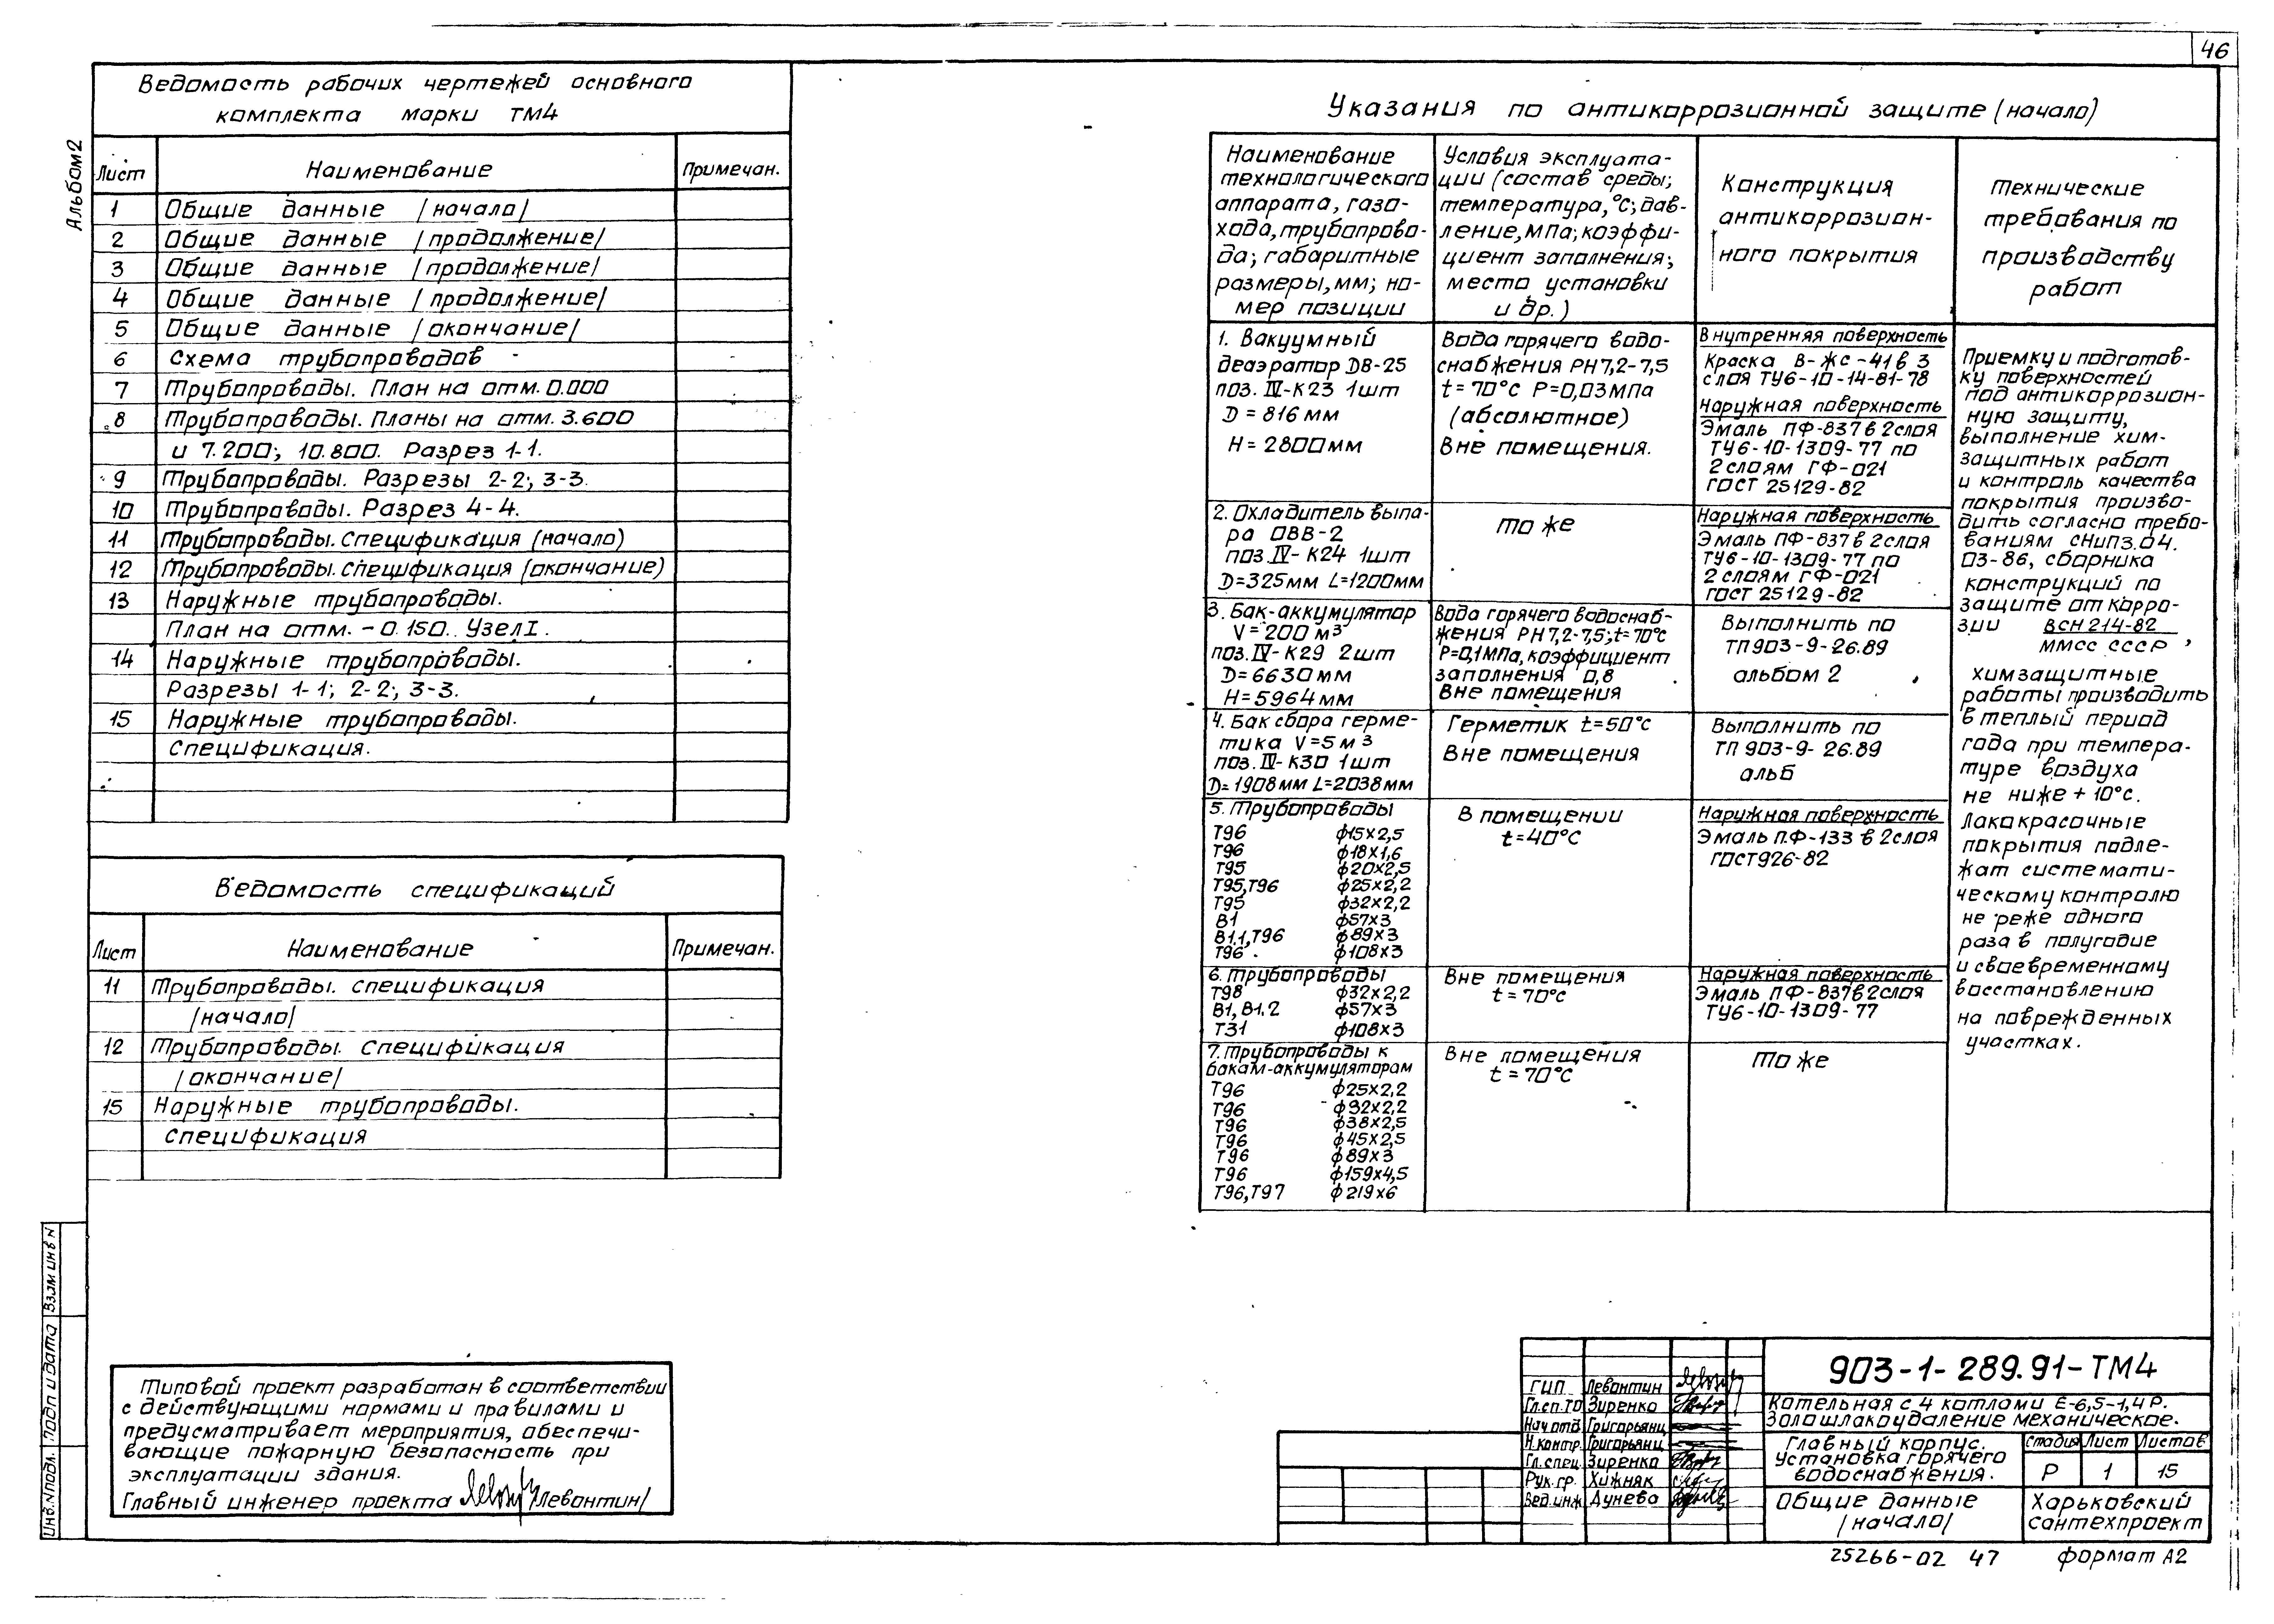 46
Альбом2
Ведомость рабочих чертежей основного
комплекта марки ТМ4
Лист Наименование Примечан.
1 Общие данные /начало/
2 Общие данные /продолжение/
3 Общие данные /продолжение/
4 Общие данные /продолжение/
5 Общие данные /окончание/
6 Схема трубопроводов
7 Трубопроводы. План на отм. 0.000
8 Трубопроводы. Планы на отм. 3.600
и 7.200; 10.800. Разрез 1-1.
9 Трубопроводы. Разрезы 2-2; 3-3.
10 Трубопроводы. Разрез 4-4.
11 Трубопроводы. Спецификация (начало)
12 Трубопроводы. Спецификация (окончание)
13 Наружные трубопроводы.
План на отм. -0.150. Узел I.
14 Наружные трубопроводы.
Разрезы 1-1; 2-2; 3-3.
15 Наружные трубопроводы.
Спецификация.
Ведомость спецификаций
Лист Наименование Примечан.
11 Трубопроводы. Спецификация
/начало/
12 Трубопроводы. Спецификация
/окончание/
15 Наружные трубопроводы.
Спецификация
Типовой проект разработан в соответствии
с действующими нормами и правилами и
предусматривает мероприятия, обеспечи-
вающие пожарную безопасность при
эксплуатации здания.
Главный инженер проекта /Левонтин/
Инв.№подл. Подп и дата Взам инв N
Указания по антикоррозионной защите (начало)
Наименование
технологического
аппарата, газо-
хода, трубопрово-
да; габаритные
размеры, мм; но-
мер позиции
Условия эксплуата-
ции (состав среды;
температура, °С; дав-
ление, МПа; коэффи-
циент заполнения;
место установки
и др.)
Конструкция
антикоррозион-
ного покрытия
Технические
требования по
производству
работ
1. Вакуумный
деаэратор ДВ-25
поз. IV-К23 1шт
D=816 мм
H=2800мм
Вода горячего водо-
снабжения РН 7,2-7,5
t=70°С Р=0,03МПа
(абсолютное)
Вне помещения.
Внутренняя поверхность
Краска В-ЖС-41 в 3
слоя ТУ6-10-14-81-78
Наружная поверхность
Эмаль ПФ-837 в 2слоя
ТУ6-10-1309-77 по
2 слоям ГФ-021
ГОСТ 25129-82
2. Охладитель выпа-
ра ОВВ-2
поз. IV-К24 1шт
D=325мм L=1200мм
То же
Наружная поверхность
Эмаль ПФ-837 в 2слоя
ТУ6-10-1309-77 по
2 слоям ГФ-021
ГОСТ 25129-82
3. Бак-аккумулятор
V=200 м³
поз. IV-К29 2шт
D=6630мм
H=5964мм
Вода горячего водоснаб-
жения РН 7,2-7,5; t=70°С
Р=0,1МПа, коэффициент
заполнения 0,8
Вне помещения
Выполнить по
ТП903-9-26.89
альбом 2
4. Бак сбора герме-
тика V=5 м³
поз. IV-К30 1шт
D=1908мм L=2038мм
Герметик t=50°С
Вне помещения
Выполнить по
ТП 903-9-26.89
альб
5. Трубопроводы
Т96 ф15х2,5
Т96 ф18х1,6
Т95 ф20х2,5
Т95,Т96 ф25х2,2
Т95 ф32х2,2
В1 ф57х3
В1.1,Т96 ф89х3
Т96 ф108х3
В помещении
t=40°С
Наружная поверхность
Эмаль ПФ-133 в 2слоя
ГОСТ926-82
6. Трубопроводы
Т98 ф32х2,2
В1, В1.2 ф57х3
Т31 ф108х3
Вне помещения
t=70°С
Наружная поверхность
Эмаль ПФ-837в 2слоя
ТУ6-10-1309-77
7. Трубопроводы к
бакам-аккумуляторам
Т96 ф25х2,2
Т96 ф32х2,2
Т96 ф38х2,5
Т96 ф45х2,5
Т96 ф89х3
Т96 ф159х4,5
Т96,Т97 ф219х6
Вне помещения
t=70°С
То же
Приемку и подготов-
ку поверхностей
под антикоррозион-
ную защиту,
выполнение хим-
защитных работ
и контроль качества
покрытия произво-
дить согласно требо-
ваниям СНиП3.04.
03-86, сборника
конструкций по
защите от корро-
зии ВСН 214-82
ММСС СССР ,
химзащитные
работы производить
в теплый период
года при темпера-
туре воздуха
не ниже +10°С.
Лакокрасочные
покрытия подле-
жат системати-
ческому контролю
не реже одного
раза в полугодие
и своевременному
восстановлению
на поврежденных
участках.
903-1-289.91-ТМ4
Котельная с 4 котлами Е-6,5-1,4 Р.
Золошлакоудаление механическое.
ГИП Левонтин
Гл.сп.ТО Зиренко
Нач отд Григорьянц
Н.контр. Григорьянц
Гл.спец. Зиренко
Рук.гр. Хижняк
Вед.инж Дунева
Главный корпус.
Установка горячего
водоснабжения.
Стадия Лист Листов
Р 1 15
Общие данные
/начало/
Харьковский
Сантехпроект
25266-02 47 формат А2